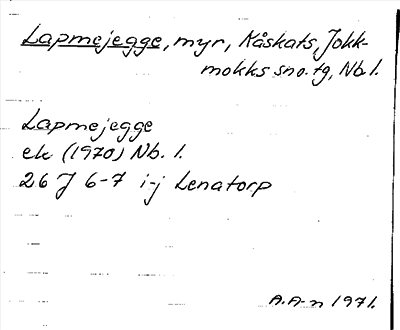 Lapmejegge, myr, Kåskats, Jokk-
mokks sno. tg, Nb l.
Lapmejegge
ek (1970) Nb. l.
26 J 6-7 i-j Lenatorp
A. A-n 1971.